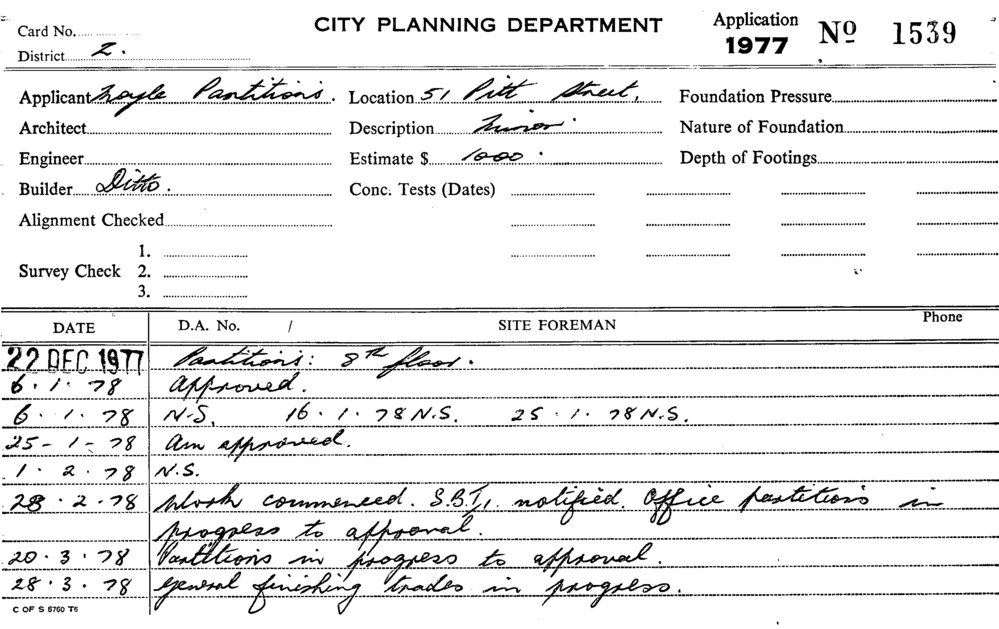 Card No.
CITY PLANNING DEPARTMENT
Application 1977 No 1539
District 2.
Applicant Partitions. Location 51 Pitt Street, Foundation Pressure
Architect Description Minor. Nature of Foundation
Engineer Estimate $ 1000. Depth of Footings
Builder Ditto. Conc. Tests (Dates)
Alignment Checked
1.
Survey Check 2.
3.
DATE D.A. No. / SITE FOREMAN Phone
22 DEC 1977 Partitions: 8th floor.
6.1.78 Approved.
6.1.78 N.S. 16.1.78 N.S. 25.1.78 N.S.
25-1-78 Am approved.
1.2.78 N.S.
28.2.78 Work commenced. notified. Office partitions in
progress to approval.
20.3.78 Partitions in progress to approval.
28.3.78 General finishing trades in progress.
C OF S 5760 T6